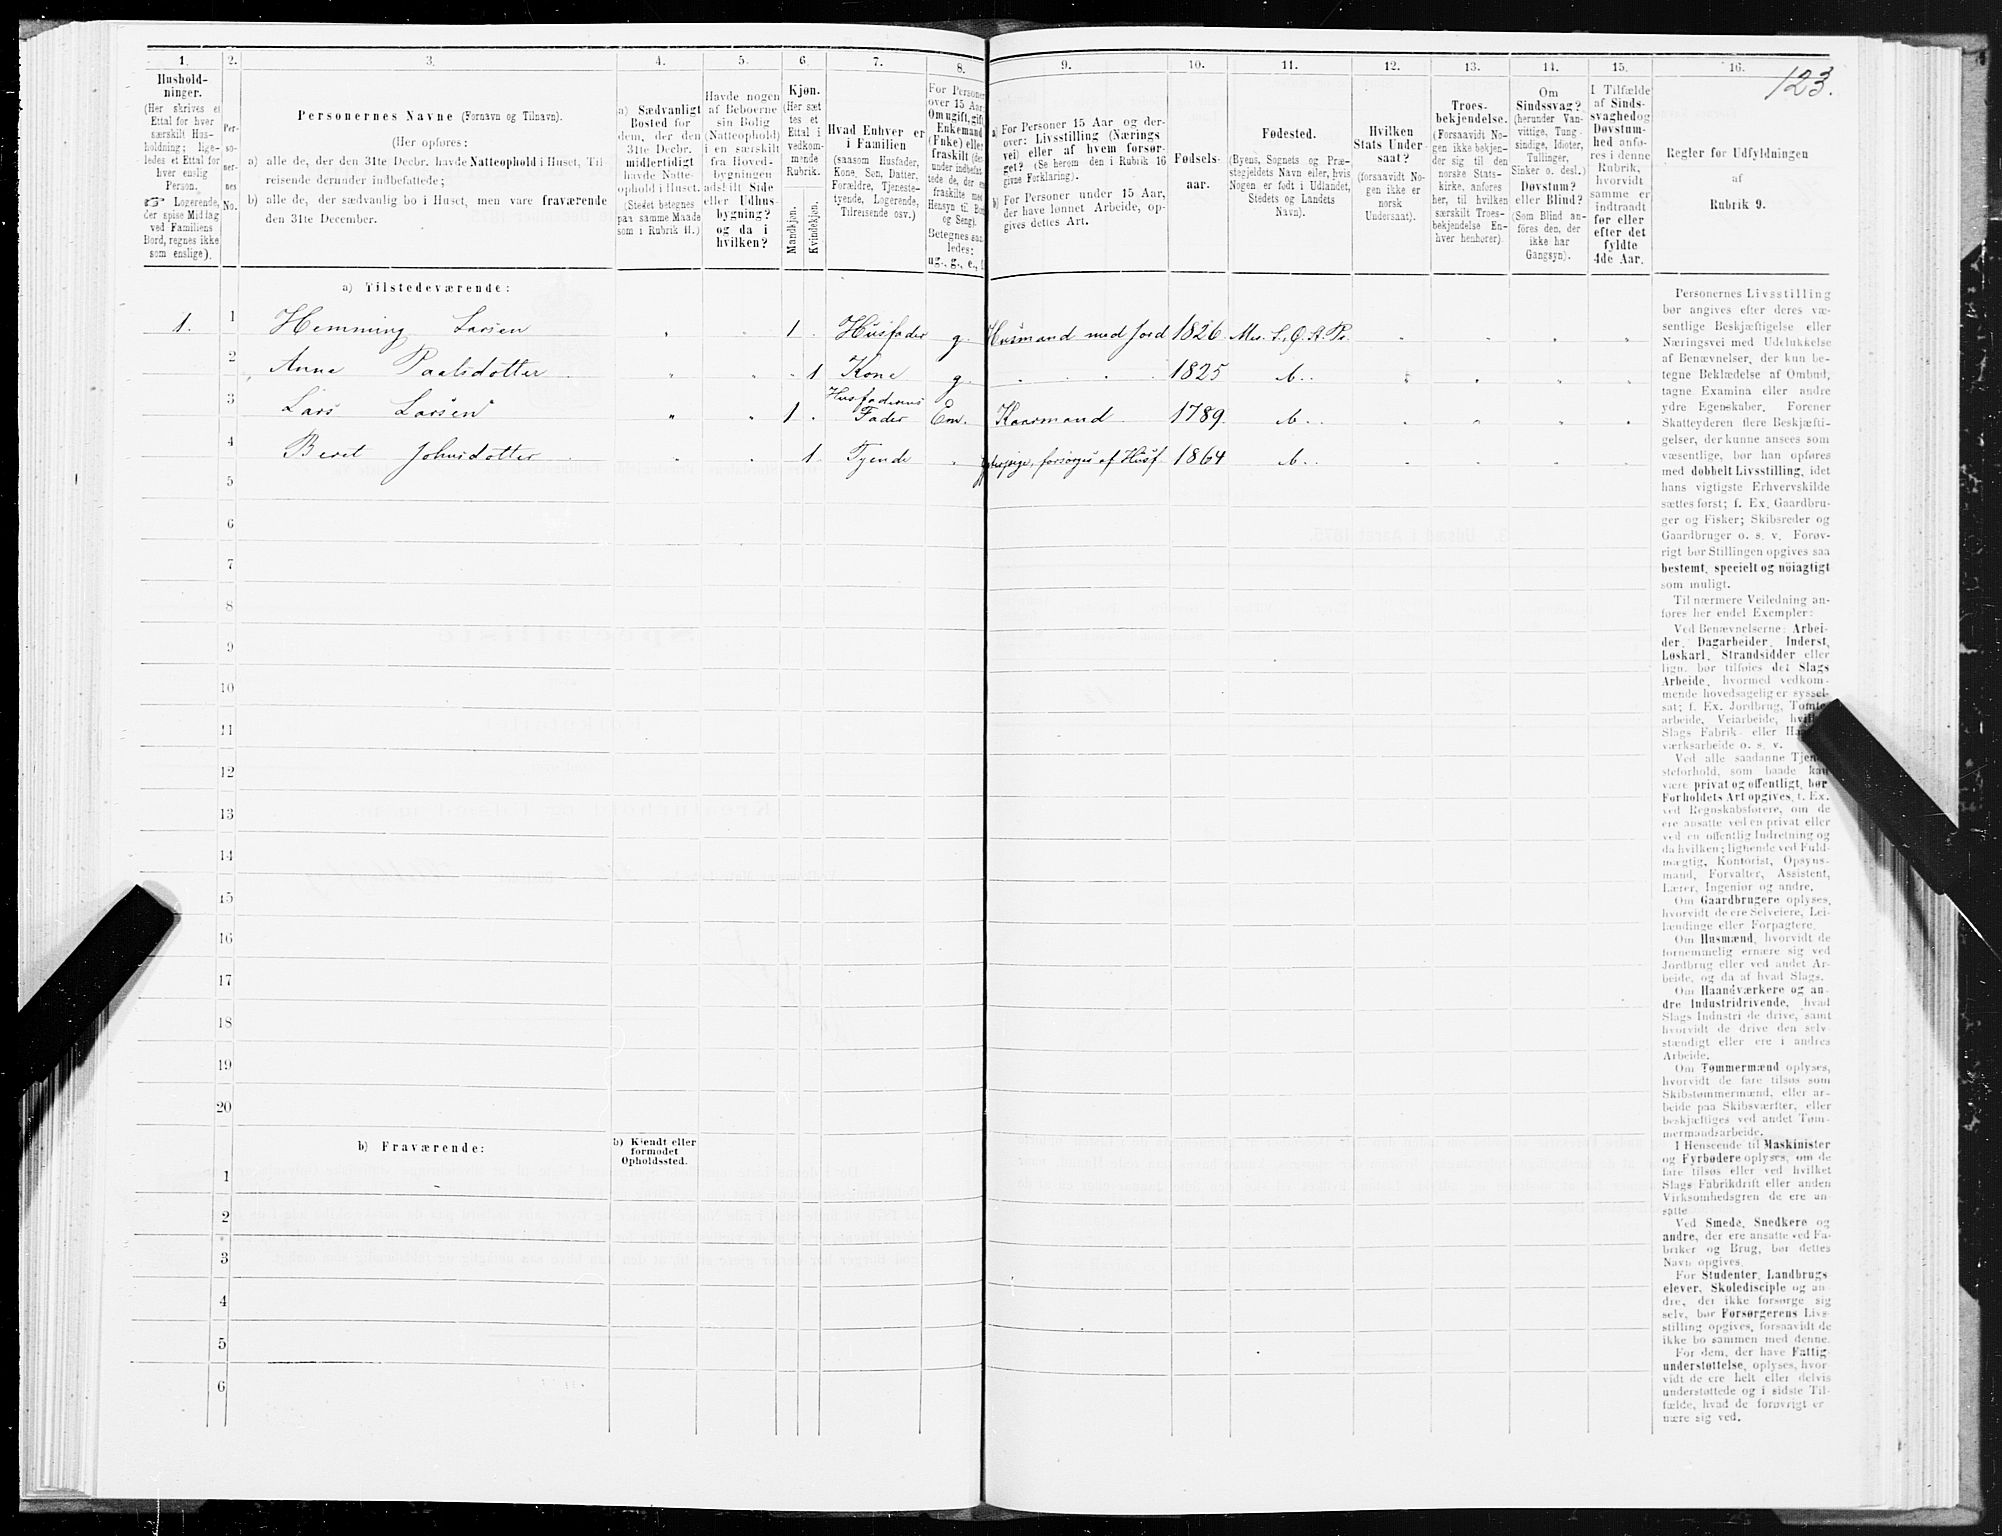 123.
1. 2. 3. 4. 5. 6. 7. 8. 9. 10. 11. 12. 13. 14. 15. 16.
Hushold-
ninger.
(Her skrives et
Ettal for hver
særskilt Hus-
holdning; lige-
ledes et Ettal for
hver enslig
Person.
☞ Logerende,
der spise Middag
ved Familiens
Bord, regnes ikke
som enslige).
Per-
so-
ner-
nes
No.
Personernes Navne (Fornavn og Tilnavn).
(Her opføres:
a) alle de, der den 31te Decbr. havde Natteophold i Huset, Til-
reisende derunder indbefattede;
b) alle de, der sædvanlig bo i Huset, men vare fraværende
den 31te December.
a) Sædvanligt
Bosted for
dem, der den
31te Decbr.
midlertidigt
havde Natte-
ophold i Huset.
(Stedet betegnes
paa samme Maade
som i Rubrik 11.)
Havde nogen
af Beboerne
sin Bolig
(Natteophold)
i en særskilt
fra Hoved-
bygningen
adskilt Side
eller Udhus-
bygning?
og da i
hvilken?
Kjøn.
(Her sæt
tes et
Ettal i
vedkom-
mende
Rubrik.
Mandkjøn.
Kvindekjøn.
Hvad Enhver er
i Familien
(saasom Husfader,
Kone, Søn, Datter,
Forældre, Tjeneste-
tyende, Logerende,
Tilreisende osv.)
For Personer
over 15 Aar:
Om ugift, gift,
Enkemand
(Enke) eller
fraskilt (der-
under indbefat-
tede de, der er
fraskilte med
Hensyn til Bord
og Seng).
Betegnes saa-
ledes:
ug., g., e.,
a) For Personer 15 Aar og der-
over: Livsstilling (Nærings
vei) eller af hvem forsør-
get? (Se herom den i Rubrik 16
givne Forklaring).
b) For Personer under 15 Aar,
der have lønnet Arbeide, op-
gives dettes Art.
Fødsels-
aar.
Fødested.
(Byens, Sognets og Præ-
stegjeldets Navn eller, hvis
Nogen er født i Udlandet,
Stedets og Landets
Navn).
Hvilken
Stats Under
saat?
(forsaavidt No-
gen ikke er
norsk
Undersaat).
Troes-
bekjendelse.
(Forsaavidt No-
gen ikke bekjen-
der sig til den
norske Stats-
kirke, anføres
her, til hvilken
særskilt Troes-
bekjendelse En-
hver henhører).
Om
Sindssvag?
(herunder Van-
vittige, Tung-
sindige, Idioter,
Tullinger,
Sinker o. desl.)
Døvstum?
eller Blind?
(Som Blind an-
føres den, der
ikke har
Gangsyn).
I Tilfælde
af Sinds-
svaghedog
Døvstum-
hed anfø-
res i denne
Rubrik,
hvorvidt
samme er
indtraadt
før eller
efter det
fyldte
4de Aar.
Regler for Udfyldningen
af
Rubrik 9.
a) Tilstedeværende:
1. 1 Hemming Larsen " " 1 . Husfader g. Husmand med Jord 1826
2 Anna Paalsdotter " " . 1 Kone g. 1825
3 Lars Larsen " " 1 . Husfaderens
Fader Em. Kaarmand 1789
4 Beret Johnsdotter " " . 1 Tyende forsørges af Husf. 1864
5
6
7
8
9
10
11
12
13
14
15
16
17
18
19
20
b) Fraværende:
b) Kjendt eller
formodet
Opholdssted.
1
2
3
4
5
6
Personernes Livsstilling
bør angives efter deres væ-
sentlige Beskjæftigelse eller
Næringsvei med Udelukkelse
af Benævnelser, der kun be-
tegne Beklædelse af Ombud,
tagne Examina eller andre
ydre Egenskaber. Forener
Skatteyderen flere Beskjæfti-
gelser, der kunne ansees som
væsentlige, bør han opføres
med dobbelt Livsstilling, idet
hans vigtigste Erhvervskilde
sættes først; f. Ex. Gaardbru-
ger og Fisker; Skibsreder og
Gaardbruger o. s. v. Forøv-
rigt bør Stillingen opgives saa
bestemt, specielt og nøiagtigt
som muligt.
Til nærmere Veiledning an-
føres her endel Exempler:
Ved Benævnelserne: Arbei-
der, Dagarbeider, Inderst,
Løskarl, Strandsidder eller
lign. bør tilføies det Slags
Arbeide, hvormed vedkom-
mende hovedsagelig er syssel-
sat; f. Ex. Jordbrug, Tomte-
arbeide, Veiarbeide, hvilket
Slags Fabrik- eller Haand-
værksarbeide o. s. v.
Ved alle saadanne Tjene-
steforhold, som baade kan
være privat og offentligt, bør
Forholdets Art opgives, f. Ex.
ved Regnskabsførere, om de
ere ansatte ved en privat eller
ved en offentlig Indretning og
da hvilken; lignende ved Fuld-
mægtig, Kontorist, Opsyns-
mand, Forvalter, Assistent,
Lærer, Ingeniør og andre.
Om Gaardbrugere oplyses,
hvorvidt de ere Selveiere, Lei-
lændinge eller Forpagtere.
Om Husmænd, hvorvidt de
fornemmelig ernære sig ved
Jordbrug eller ved andet Ar-
beide, og da af hvad Slags.
Om Haandværkere og an-
dre Industridrivende, hvad
Slags Industri de drive, samt
hvorvidt de drive den selv-
stændigt eller ere i andres
Arbeide.
Om Tømmermænd oplyses,
hvorvidt de fare tilsøs som
Skibstømmermænd, eller ar-
beide paa Skibsværfter, eller
beskjæftiges ved andet Tøm-
mermandsarbeide.
I Henseende til Maskinister
og Fyrbødere oplyses, om de
fare tilsøs eller ved hvilket
Slags Fabrikdrift eller anden
Virksomhedsgren de ere an-
satte.
Ved Smede, Snedkere og
andre, der ere ansatte ved Fa-
briker og Brug, bør dettes
Navn opgives.
For Studenter, Landbrugs
elever, Skoledisciple og an-
dre, der ikke forsørge sig
selv, bør Forsørgerens Livs-
stilling opgives, forsaavidt de
ikke bo sammen med denne.
For dem, der have Fattig
understøttelse, oplyses, hvor-
vidt de ere helt eller delvis
understøttede og i sidste Til-
fælde, hvad de forøvrigt er
nære sig ved.